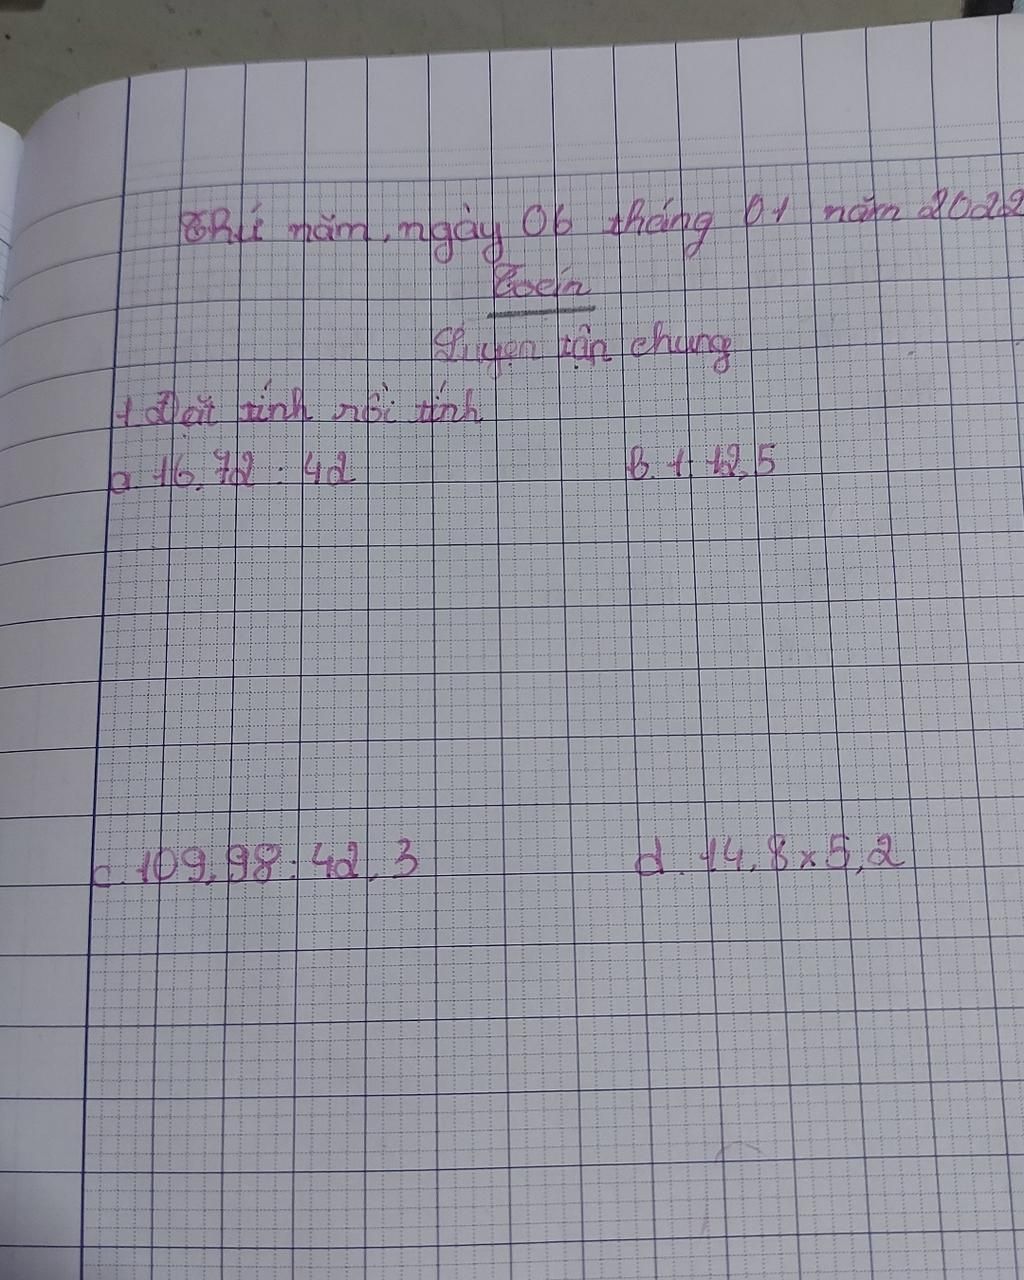 Thứ năm, ngày 06 tháng 01 năm 2022
Toán
Luyện tập chung
1 Đặt tính rồi tính
a 16,72 : 42
b. 1 : 12,5
c. 109,98 : 42,3
d. 14,8 x 5,2